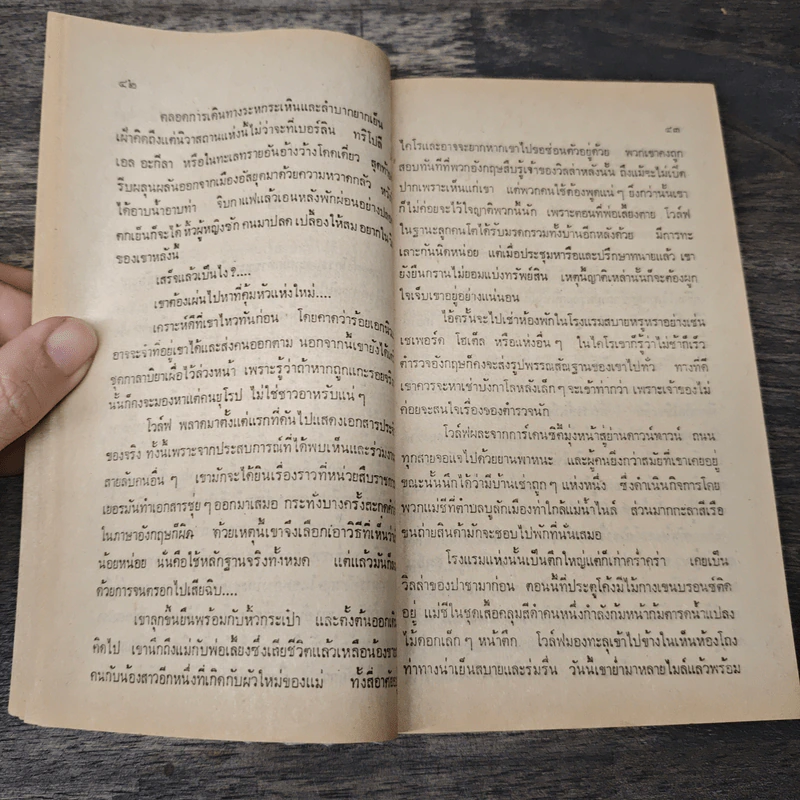 ๔๒
ตลอดการเดินทางระหกระเหินและลำบากยากเย็น
เฝ้าคิดถึงแต่นิวาสถานแห่งนี้ไม่ว่าจะที่เบอร์ลิน ทริโปลี
เอล อะกีลา หรือในทะเลทรายอันอ้างว้างโดดเดี่ยว
รีบผลุนผลันออกจากเมืองอัสยุตมาด้วยความหวาดกลัว
ได้อาบน้ำอาบท่า จิบกาแฟแล้วเอนหลังพักผ่อนอย่าง
ตกเย็นก็จะได้หิ้วผู้หญิงซักคนมาปลดเปลื้องให้สมอยาก
ของเขาหลังนี้
เสร็จแล้วเป็นไง ?....
เขาต้องเผ่นไปหาที่คุ้มหัวแห่งใหม่....
เคราะห์ดีที่เขาไหวทันก่อน โดยคาดว่าร้อยเอก
อาจจะจำที่อยู่เขาได้และส่งคนออกตาม นอกจากนี้เขายังได้
ชุดกาลาบิยาเผื่อไว้ล่วงหน้า เพราะรู้ว่าถ้าหากถูกแกะรอยจริง
นั้นก็คงจะมองหาแต่คนยุโรป ไม่ใช่ชาวอาหรับแน่ ๆ
โวล์ฟ พลาดมาตั้งแต่แรกที่ดันไปแสดงเอกสารประ
ของจริง ทั้งนี้เพราะจากประสบการณ์ที่ได้พบเห็นและร่วมงาน
สายลับคนอื่น ๆ เขามักจะได้ยินเรื่องราวที่หน่วยสืบราชการ
เยอรมันทำเอกสารชุ่ย ๆ ออกมาเสมอ กระทั่งบางครั้งสะกด
ในภาษาอังกฤษก็ผิด ด้วยเหตุนี้เขาจึงเลือกเอาวิธีที่เห็นว่า
น้อยหน่อย นั่นคือใช้หลักฐานจริงทั้งหมด แต่แล้วมันก็
ด้วยการจนตรอกไปเสียฉิบ....
เขาลุกขึ้นยืนพร้อมกับหิ้วกระเป๋า และตั้งต้นออก
คิดไป เขานึกถึงแม่กับพ่อเลี้ยงซึ่งเสียชีวิตแล้วเหลือน้อง
คนกับน้องสาวอีกหนึ่งที่เกิดกับผัวใหม่ของแม่ ทั้งสี่
๔๓
ไคโรและอาจจะยากหากเขาไปขอซ่อนตัวอยู่ด้วย พวกเขาคงถูก
สอบทันทีที่พวกอังกฤษสืบรู้เจ้าของวิลล่าหลังนั้น ถึงแม้จะไม่เปิด
ปากเพราะเห็นแก่เขา แต่พวกคนใช้ต้องพูดแน่ ๆ ยิ่งกว่านั้นเขา
ก็ไม่ค่อยจะไว้ใจญาติพวกนี้นัก เพราะตอนที่พ่อเลี้ยงตาย โวล์ฟ
ในฐานะลูกคนโตได้รับมรดกรวมทั้งบ้านอีกหลังด้วย มีการทะ
เลาะกันนิดหน่อย แต่เมื่อประชุมหารือและปรึกษาทนายแล้ว เขา
ยังยืนกรานไม่ยอมแบ่งทรัพย์สิน เหตุนี้ญาติเหล่านั้นก็จะต้องผูก
ใจเจ็บเขาอยู่อย่างแน่นอน
ไอ้ครั้นจะไปเช่าห้องพักในโรงแรมสบายหรูหราอย่างเช่น
เชเพอร์ด โฮเต็ล หรือแห่งอื่น ๆ ในไคโรเขาก็รู้ว่าไม่ช้าก็เร็ว
ตำรวจอังกฤษก็คงจะส่งรูปพรรณสัณฐานของเขาไปทั่ว ทางที่ดี
เขาควรจะหาเช่าบังกาโลหลังเล็ก ๆ จะเข้าท่ากว่า เพราะเจ้าของไม่
ค่อยจะสนใจเรื่องของตำรวจนัก
โวล์ฟผละจากการ์เดนซิตี้มุ่งหน้าสู่ย่านดาวน์ทาวน์ ถนน
ทุกสายจอแจไปด้วยยานพาหนะ และผู้คนยิ่งกว่าสมัยที่เขาเคยอยู่
ขณะนั้นนึกได้ว่ามีบ้านเช่าถูก ๆ แห่งหนึ่ง ซึ่งดำเนินกิจการโดย
พวกแม่ชีที่ตำบลบูลักเมืองท่าใกล้แม่น้ำไนล์ ส่วนมากกะลาสีเรือ
ขนถ่ายสินค้ามักจะชอบไปพักที่นั่นเสมอ
โรงแรมแห่งนั้นเป็นตึกใหญ่แต่ก็เก่าคร่ำคร่า เคยเป็น
วิลล่าของปาชามาก่อน ตอนนี้ที่ประตูโค้งมีไม้กางเขนบรอนซ์ติด
อยู่ แม่ชีในชุดเสื้อคลุมสีดำคนหนึ่งกำลังก้มหน้าก้มตารดน้ำแปลง
ไม้ดอกเล็ก ๆ หน้าตึก โวล์ฟมองทะลุเข้าไปข้างในเห็นห้องโถง
ท่าทางน่าเย็นสบายและร่มรื่น วันนี้เขาย่ำมาหลายไมล์แล้วพร้อม